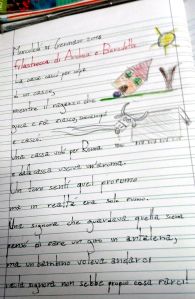 Mercoledì 31 Gennaio 2018
Filastrocca di Andrea e Benedetta
La casa cascò per colpa
di un casco,
mentre il ragazzo che
gioca
e cascò.
Una casa volò per Roma
e dalla casa usciva un'aroma.
Un toro sentì quel profumo
ma in realtà era solo fumo.
Una signora che guardava quella scena
pensò di fare un giro in altalena,
ma un bambino voleva andarci
e la signora non seppe proprio cosa farci